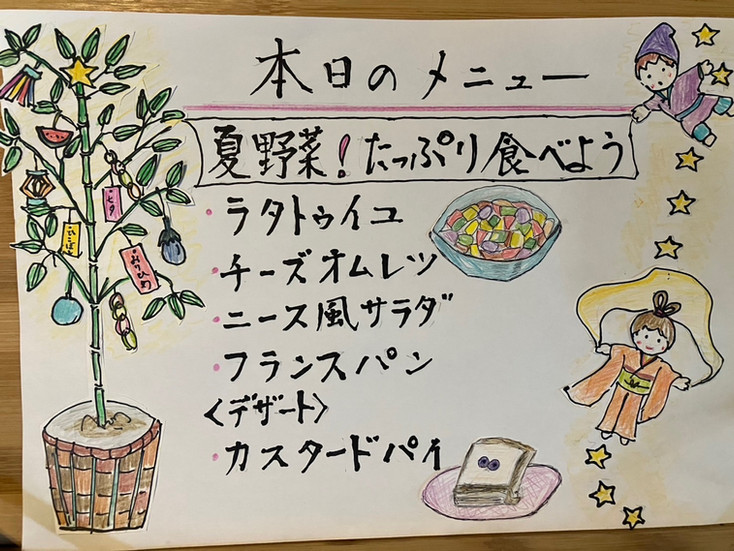 本日のメニュー
夏野菜!たっぷり食べよう
・ラタトゥイユ
・チーズオムレツ
・ニース風サラダ
・フランスパン
〈デザート〉
・カスタードパイ
七夕
ひこぼし
おりひめ